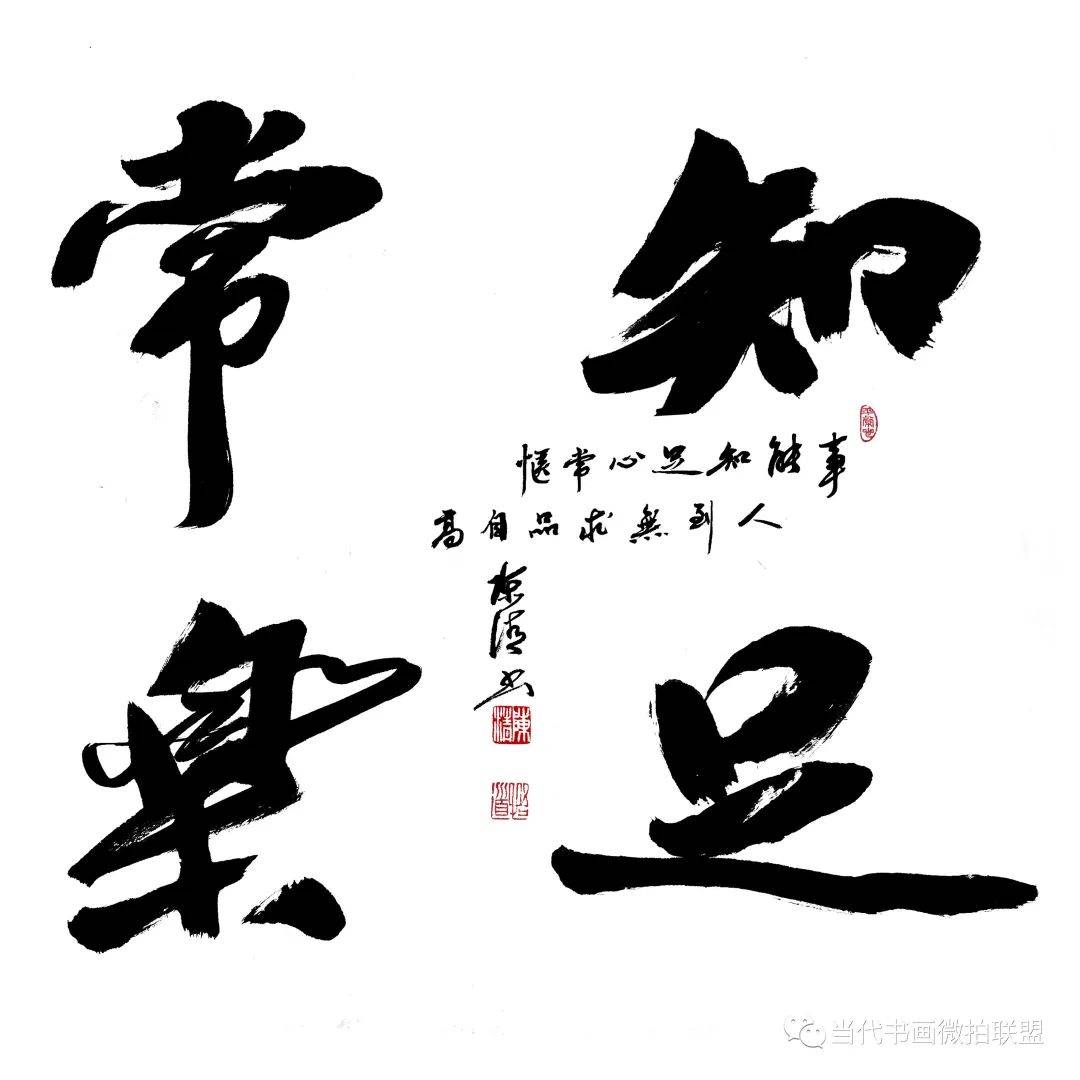 知足
常樂
事能知足心常愜
人到無求品自高
陳清书
当代书画微拍联盟